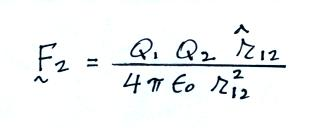 F̰₂ = Q₁ Q₂ r̂₁₂ / 4 π ε₀ r₁₂²